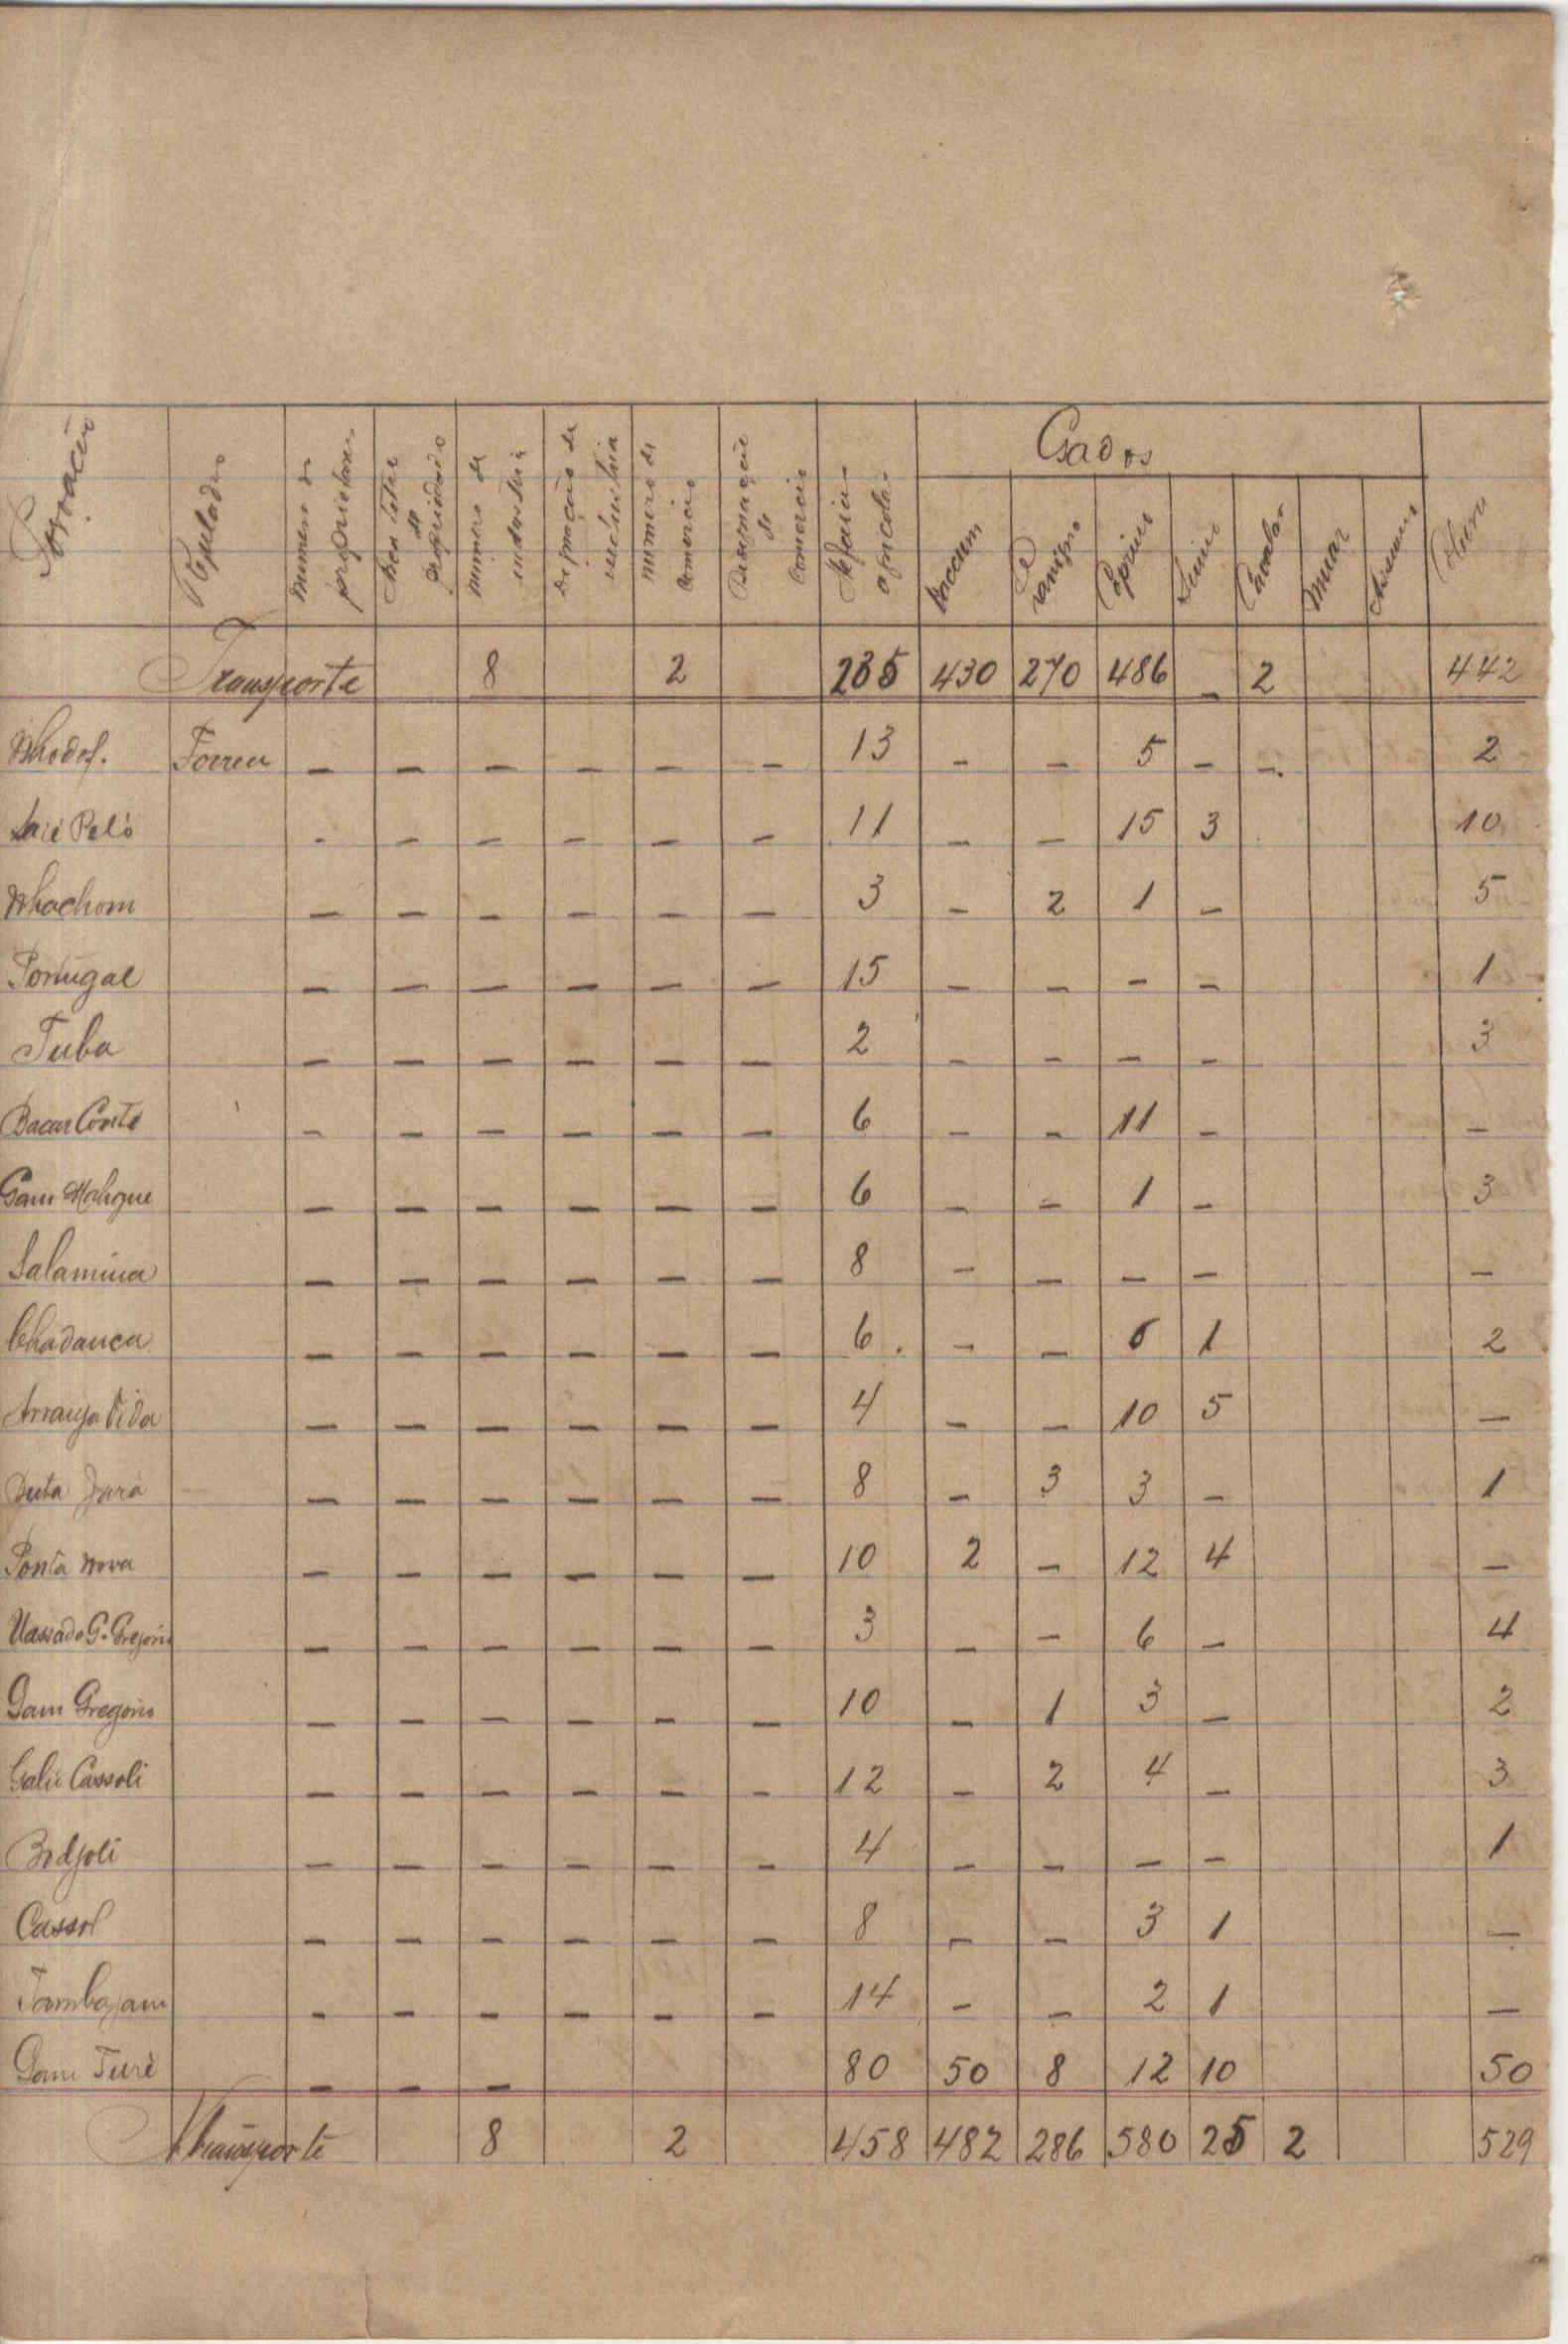 Povoação | Regulado | numero de proprietarios | Area total de propriedade | numero de industria | Designação de industria | numero de Comercio | Designação de Comercio | Alfaias agricolas | Gados | Vaccum | Lanigero | Caprino | Suino | Cavalar | Muar | Asinino
Transporte 8 2 235 430 270 486 _ 2 442
Forrea — — — — — — 13 - — 5 - -. 2
- — — — — — 11 — — 15 3 10
Nhachom — — — — — — 3 — 2 1 — 5
Portugal — — — — — — 15 — — — — 1
Tuba — — — — — — 2 — — — — 3
Bacar Conté — — — — — — 6 — — 11 — —
— — — — — — 6 — — 1 — 3
Salamina — — — — — — 8 — — — — —
Chadanca — — — — — — 6 . — — 6 1 2
Arranja Vida — — — — — — 4 — — 10 5 —
— — — — — — 8 — 3 3 — 1
Ponta nova — — — — — — 10 2 — 12 4 —
— — — — — — 3 — — 6 — 4
Gam Gregorio — — — — — — 10 — 1 3 — 2
Cassoli — — — — — — 12 — 2 4 — 3
— — — — — — 4 — — — — 1
Cassol — — — — — — 8 — — 3 1 —
— — — — — — 14 — — 2 1 —
Gam Turè — — — 80 50 8 12 10 50
Transporte 8 2 458 482 286 580 25 2 529